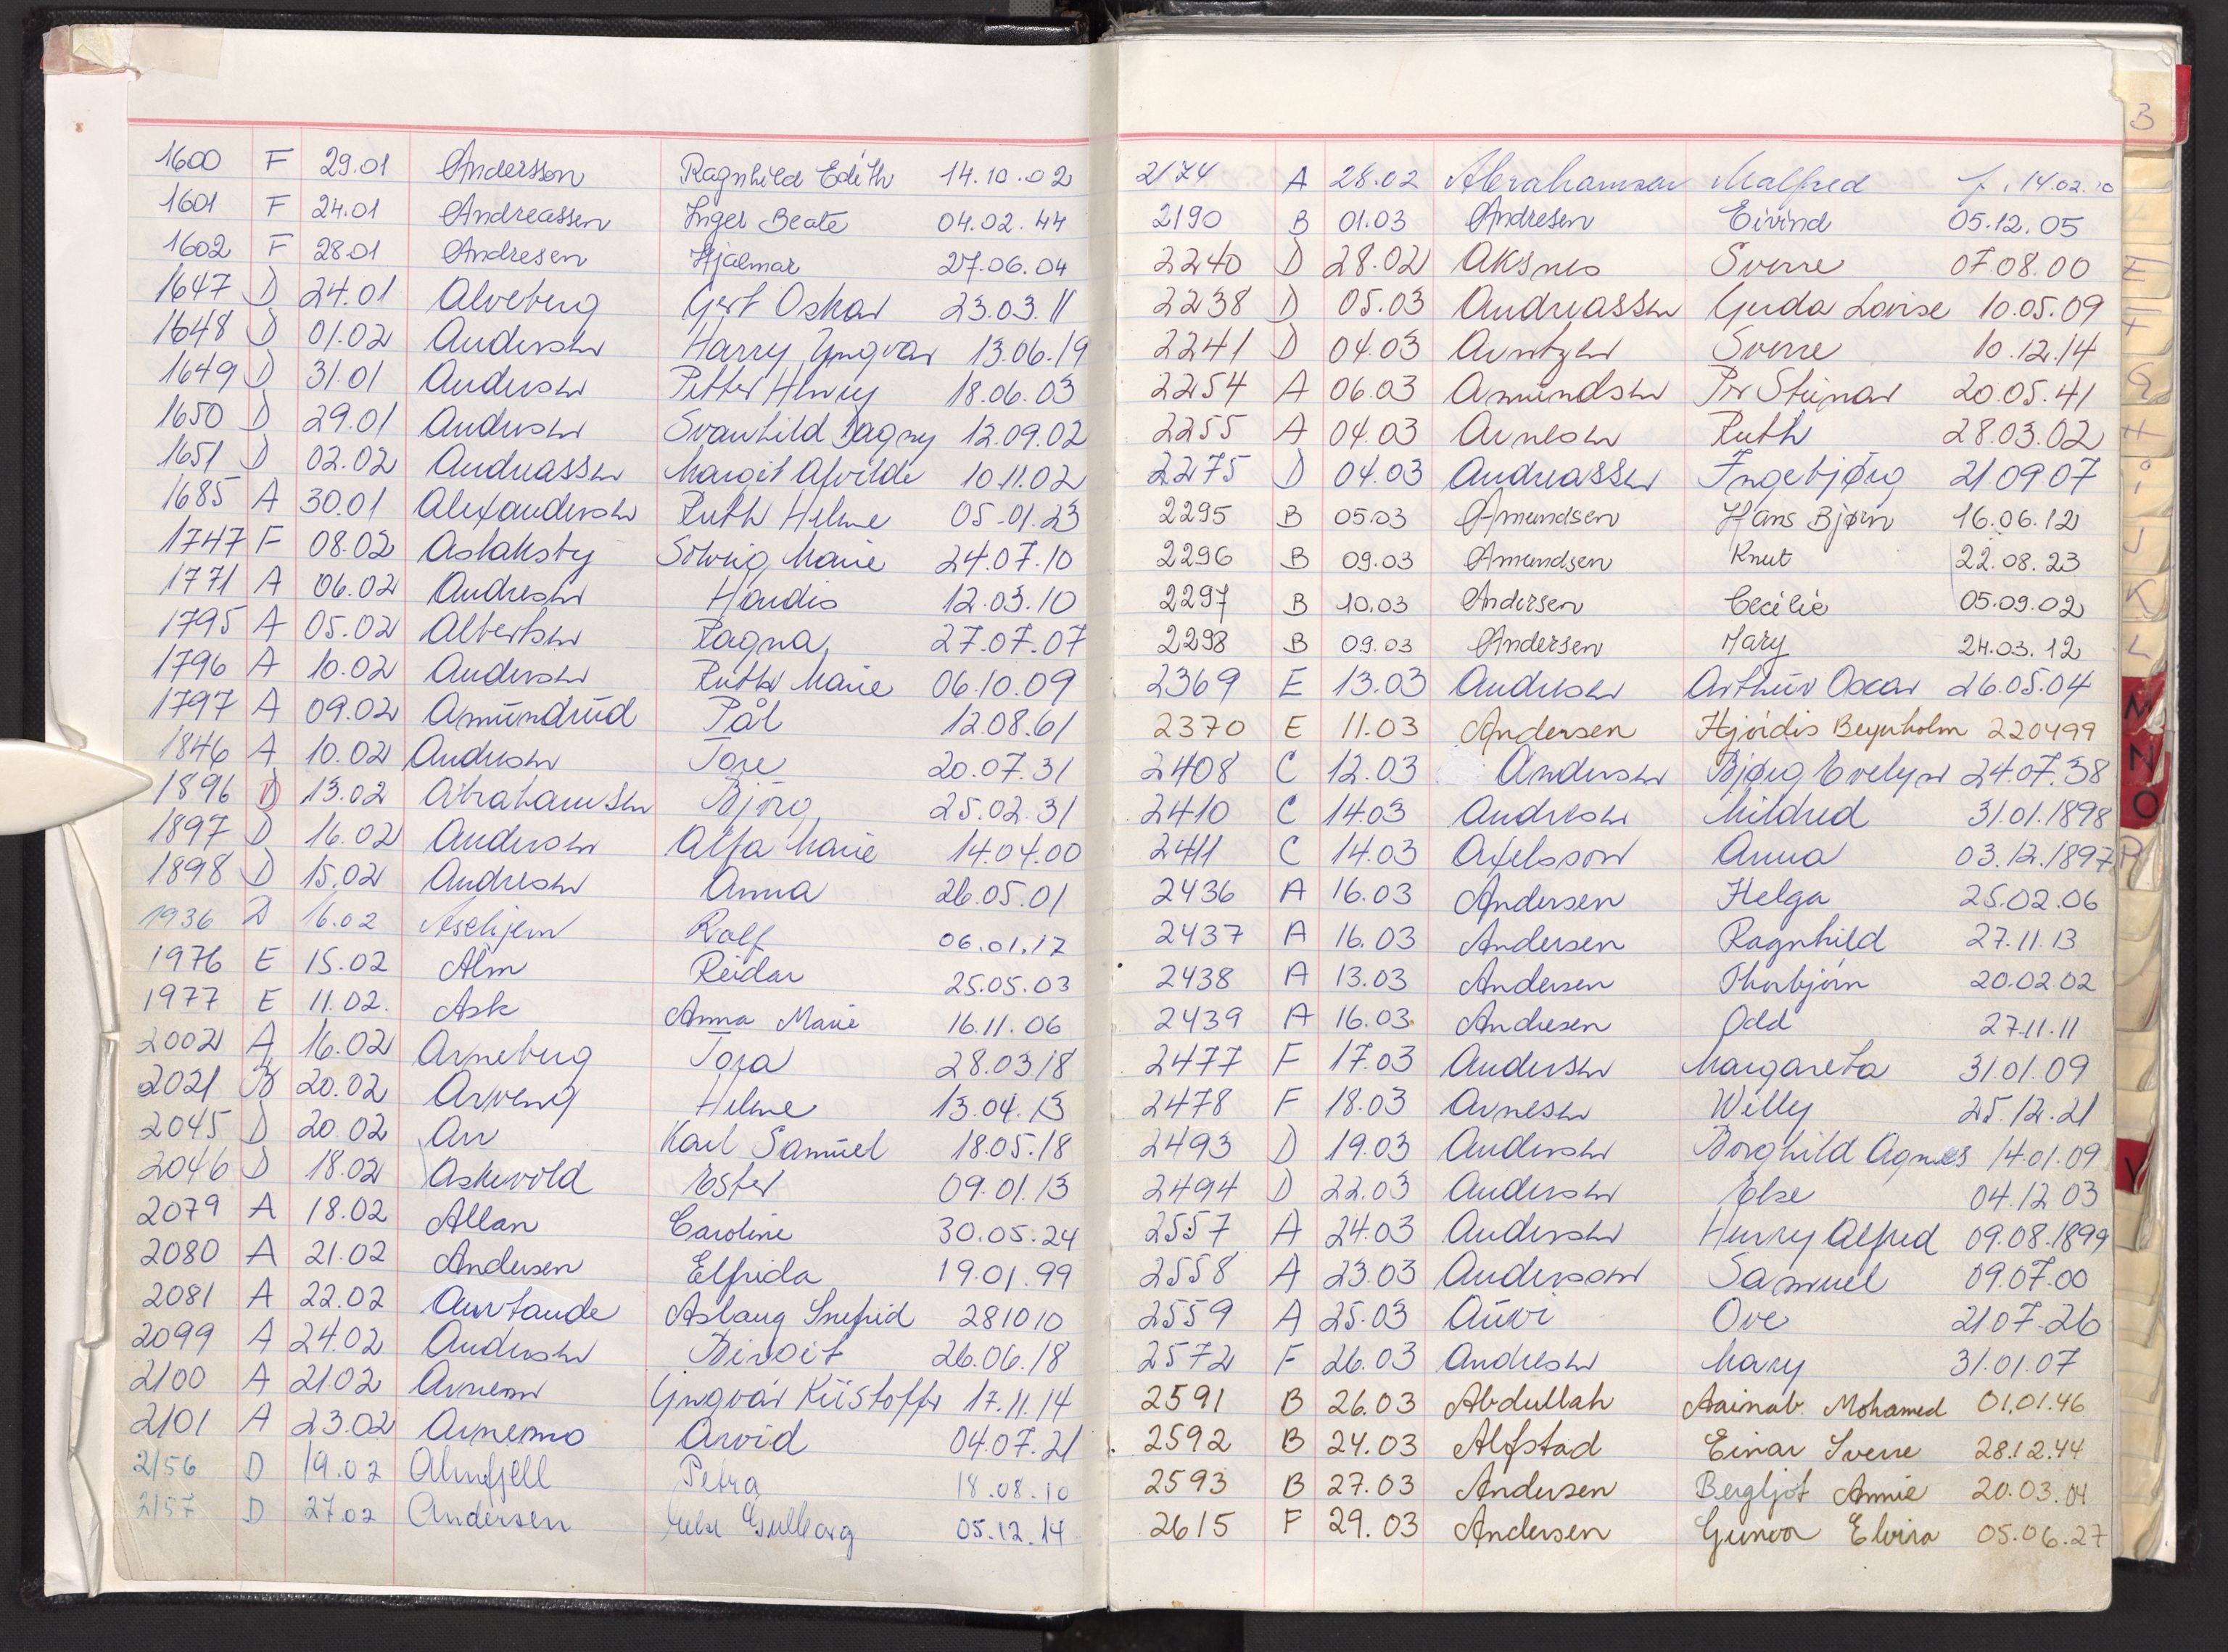 1600 F 29.01 Andersson Ragnhild Edith 14.10.02
1601 F 24.01 Andreassen Inger Beate 04.02.44
1602 F 28.01 Andresen Hjalmar 27.06.04
1647 D 24.01 Alveberg Gert Oskar 23.03.11
1648 D 01.02 Andersen Harry Yngvar 13.06.19
1649 D 31.01 Andersen Petter Henry 18.06.03
1650 D 29.01 Andersen Svanhild Dagny 12.09.02
1651 D 02.02 Andreassen Margit Alvilde 10.11.02
1685 A 30.01 Alexandersen Ruth Helene 05.01.23
1747 F 08.02 Aslaksby Solveig Marie 24.07.10
1771 A 06.02 Andresen Hardis 12.03.10
1795 A 05.02 Albertsen Ragna 27.07.07
1796 A 10.02 Andersen Ruth Marie 06.10.09
1797 A 09.02 Amundrud Pål 12.08.61
1846 A 10.02 Andresen Tore 20.07.31
1896 D 13.02 Abrahamsen Bjørg 25.02.31
1897 D 16.02 Andersen Alfa Marie 14.04.00
1898 D 15.02 Andresen Anna 26.05.01
1936 D 16.02 Aschjem Rolf 06.01.17
1976 E 15.02 Alm Reidar 25.05.03
1977 E 11.02. Ask Anna Marie 16.11.06
2002 A 16.02 Arneberg Tora 28.03.18
2021 B 20.02 Arveng Helene 13.04.13
2045 D 20.02 Arr Karl Samuel 18.05.18
2046 D 18.02 Askevold Ester 09.01.13
2079 A 18.02 Allan Caroline 30.05.24
2080 A 21.02 Andersen Elfrida 19.01.99
2081 A 22.02 Aurtande Aslaug Snefrid 281010
2099 A 24.02 Andersen Birgit 26.06.18
2100 A 21.02 Arnesen Yngvar Kristoffer 17.11.14
2101 A 23.02 Arnemo Arvid 04.07.21
2156 D 19.02 Almfjell Petra 18.08.10
2157 D 27.02 Andersen Gulborg 05.12.14
2174 A 28.02 Abrahamsen Malfred f. 14.02.10
2190 B 01.03 Andresen Eivind 05.12.05
2240 D 28.02 Aksnes Sverre 07.08.00
2238 D 05.03 Andreassen Gerda Lovise 10.05.09
2241 D 04.03 Arntzen Sverre 10.12.14
2254 A 06.03 Amundsen Per Steinar 20.05.41
2255 A 04.03 Arnesen Ruth 28.03.02
2275 D 04.03 Andreassen Ingebjørg 21.09.07
2295 B 05.03 Amundsen Hans Bjørn 16.06.12
2296 B 09.03 Amundsen Knut 22.08.23
2297 B 10.03 Andersen Cecilie 05.09.02
2298 B 09.03 Andersen Mary 24.03.12
2369 E 13.03 Andresen Arthur Oscar 26.05.04
2370 E 11.03 Andersen Hjördis Beynholm 220499
2408 C 12.03 Andersen Bjørg Evelyn 24.07.38
2410 C 14.03 Andresen Mildred 31.01.1898
2411 C 14.03 Axelsson Anna 03.12.1897
2436 A 16.03 Andersen Helga 25.02.06
2437 A 16.03 Andersen Ragnhild 27.11.13
2438 A 13.03 Andersen Thorbjørn 20.02.02
2439 A 16.03 Andresen Odd 27.11.11
2477 F 17.03 Andersen Margareta 31.01.09
2478 F 18.03 Arnesen Willy 25.12.21
2493 D 19.03 Andersen Borghild Agnes 14.01.09
2494 D 22.03 Andersen Else 04.12.03
2557 A 24.03 Andersen Henry Alfred 09.08.1899
2558 A 23.03 Anderson Samuel 09.07.00
2559 A 25.03 Auvi Ove 21.07.26
2572 F 26.03 Andresen Mary 31.01.07
2591 B 26.03 Abdullah Aainab. Mohamed 01.01.46
2592 B 24.03 Alfstad Einar Sverre 28.12.44
2593 B 27.03 Andersen Bergljot Annie 20.03.04
2615 F 29.03 Andersen Gunvor Elvira 05.06.27
B
E
F
G
H
I
J
K
L
M
N
O
R
V